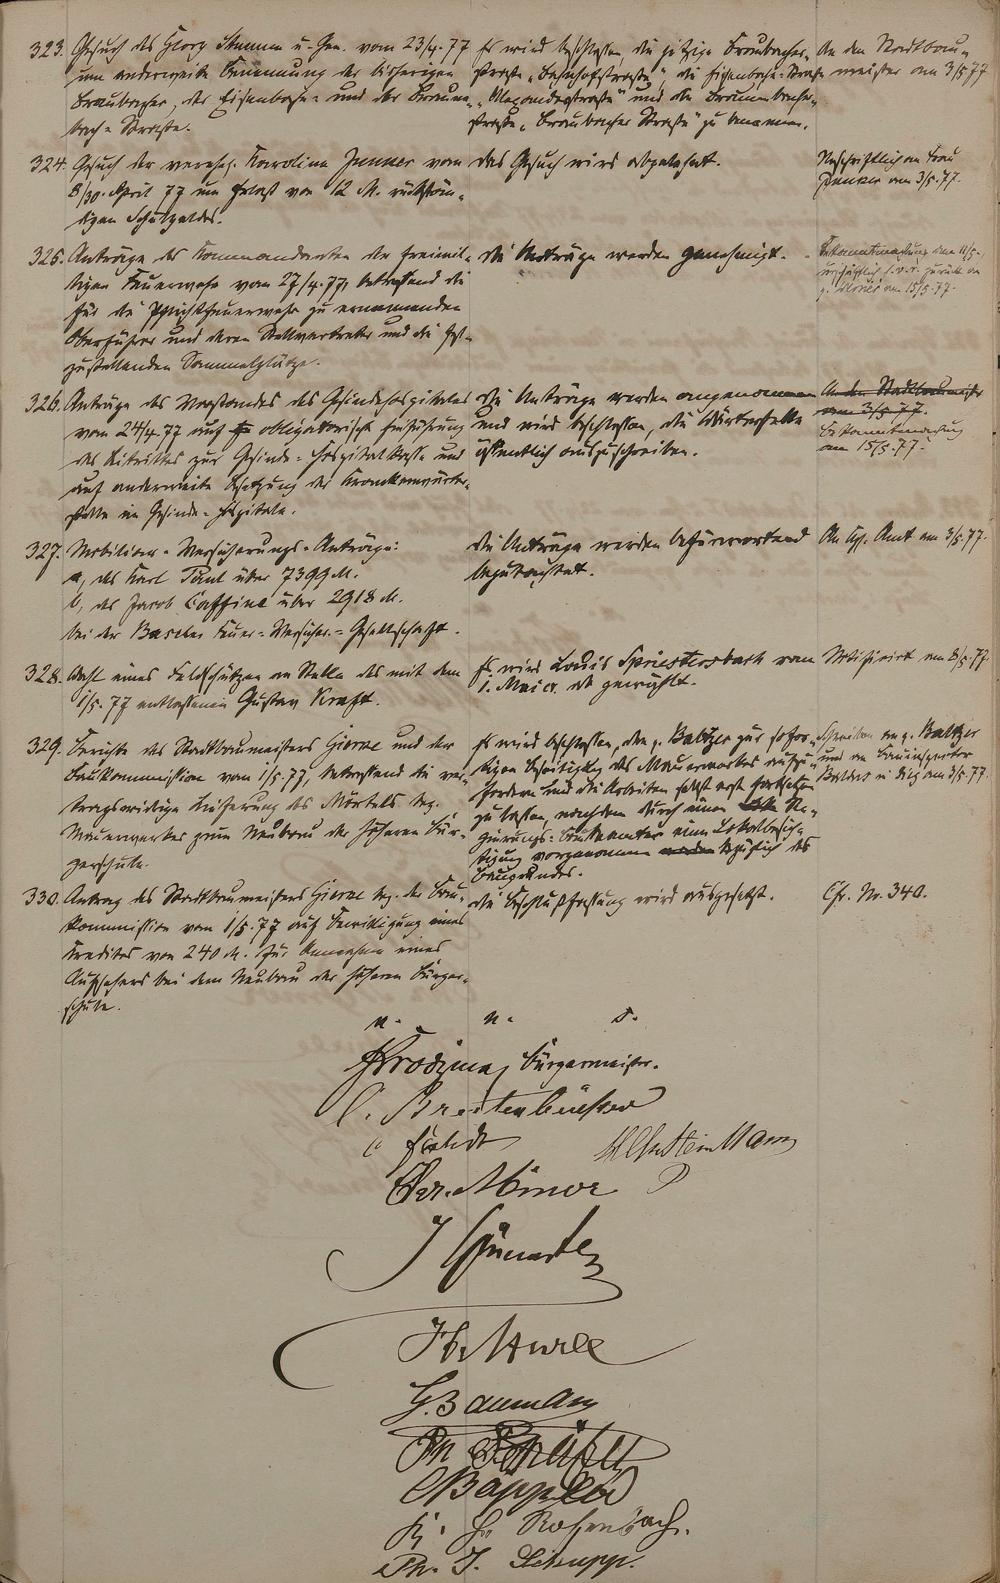 323. Gesuch des Georg Stamm u. Gen. vom 23/4.77
um anderweite Benennung der bisherigen
Braubacher, der Eisenbahn- und der Braunen-
bach-Straße.
Es wird beschlossen, die jetzige Braubacher-
straße „Bahnhofstraße", die Eisenbahn-Straße
„Alexanderstraße" und die Braunenbacher-
straße „Braubacher Straße" zu benennen.
An den Stadtbau-
meister am 3/5 77
324. Gesuch der verehel. Karoline Junker vom
8/30. April 77 um Erlaß von 12 M. rückstän-
digen Schulgeldes.
Das Gesuch wird abgelehnt.
Abschriftlich an Frau
Junker am 3/5.77.
325. Anträge des Kommandanten der freiwil-
ligen Feuerwehr vom 27/4.77, betreffend die
für die Pflichtfeuerwehr zu ernennenden
Oberführer und deren Stellvertreter und die fest-
zustellenden Sammelplätze.
Die Anträge werden genehmigt.
Bekanntmachung am 11/5.
urschriftlich s.v.r. zurück an
am 15/5.77.
326. Anträge des Vorstandes des Gesindehospitales
vom 24/4.77 auf obligatorische Einführung
des Beitrittes zur Gesinde-Hospitalkasse und
auf anderweite Besetzung der Krankenwärter-
stelle im Gesinde-Hospitale.
Die Anträge werden angenommen
und wird beschlossen, die Wärterstelle
öffentlich auszuschreiben.
An den Stadtbaumeister
am 3/5.77.
Bekanntmachung
am 15/5.77.
327. Mobiliar-Versicherungs-Anträge:
a, des Karl Paul über 7399 M.
b, des Jacob Caffine über 2918 M.
bei der Baseler Feuer-Versicher.-Gesellschaft.
Die Anträge werden befürwortend
begutachtet.
An Kgl. Amt am 3/5.77.
328. Wahl eines Feldschützen an Stelle des mit dem
1/5.77 entlassenen Gustav Kraft.
Es wird Louis Spriestersbach vom
1. Mai cr. ab gewählt.
Notificirt am 8/5.77.
329. Berichte des Stadtbaumeisters und der
Baukommission vom 1/5.77, betreffend die ver-
tragswidrige Lieferung des Mörtels bez.
Mauerwerkes zum Neubau der höheren Bür-
gerschule.
Es wird beschlossen, den p. Baltzer zur sofor-
tigen Beseitigung des Mauerwerkes aufzu-
fordern und die Arbeiten selbst erst fortsetzen
zu lassen, nachdem durch einen Re-
gierungs-Baubeamten eine Lokalbesich-
tigung vorgenommen bezüglich des
Baugrundes.
Schreiben an p. Baltzer
und an Bauinspector
in Diez am 3/5.77.
330. Antrag des Stadtbaumeisters bez. der Bau-
kommission vom 1/5.77 auf Bewilligung eines
Kredites von 240 M. für Annahme eines
Aufsehers bei dem Neubau der höheren Bürger-
schule.
Die Beschlußfassung wird ausgesetzt.
Cfr. Nr. 340.
v. n. s.
Bürgermeister.
C. Breitenbücher
Chr. Minor
G. Baumann
Ph. Schäfer
Bäppler
K. H. Rosenbach.
Ph. J. Schupp.